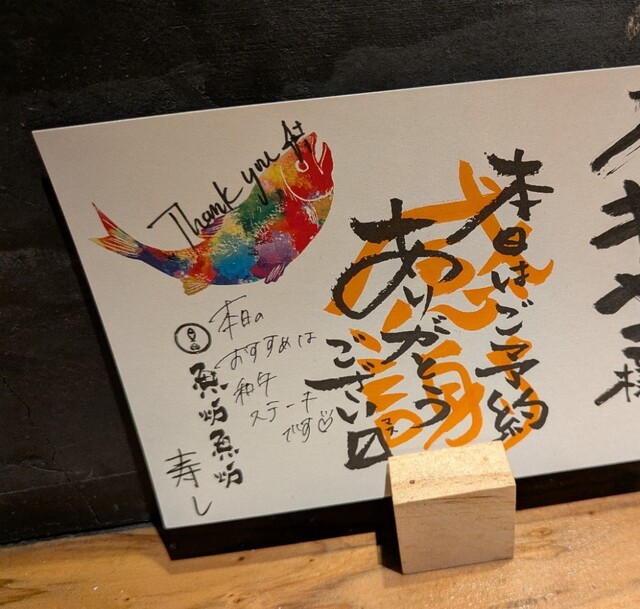 様
本日はご予約
ありがとう
ござい〼
マス
感謝
Thank you
本日の
おすすめは
和牛
ステーキ
です♡
魚炉魚炉
寿し